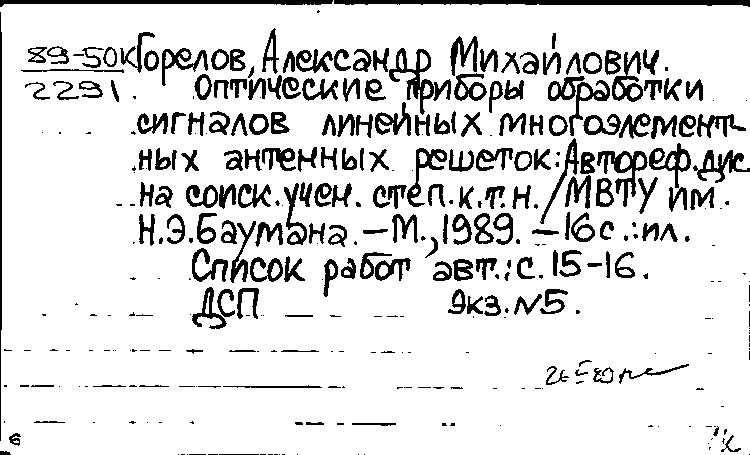 89-50к Горелов, Александр Михайлович.
2291. Оптические приборы обработки
сигналов линейных многоэлемент-
ных антенных решеток: Автореф. дис
на соиск. учен. степ. к.т.н. / МВТУ им.
Н.Э.Баумана. – М., 1989. – 16с.: ил.
Список работ авт.: с. 15-16.
ДСП Экз. №5.
б